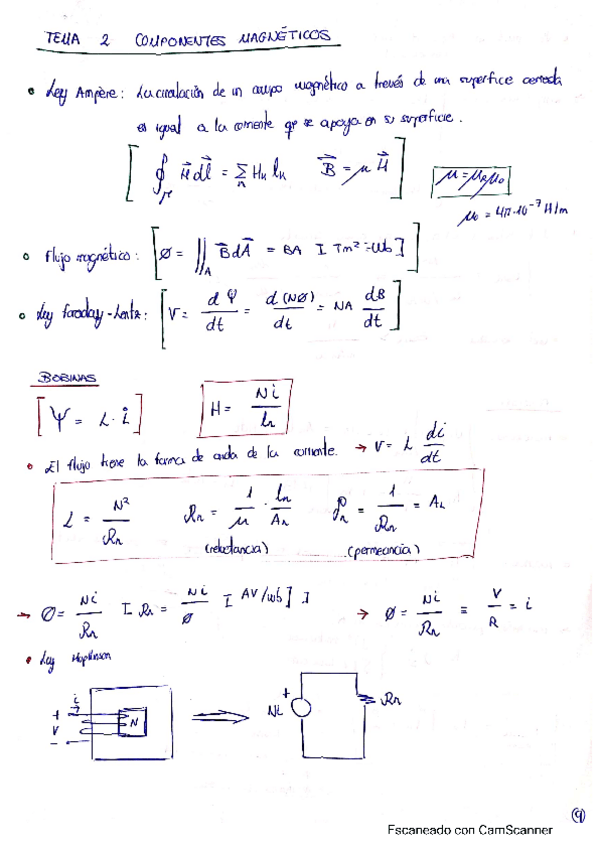 TEMA 2 COMPONENTES MAGNÉTICOS
• Ley Ampère: La circulación de un campo magnético a través de una superfice cerrada
es igual a la corriente que se apoya en su superficie.
[ ∮_Γ H⃗ dl⃗ = Σ_n Hn ln   B⃗ = μ H⃗ ]   μ = μR μ0
μ0 = 4π·10⁻⁷ H/m
• Flujo magnético: [ Ø = ∬_A B⃗ dA⃗ = BA [ Tm² = Wb ] ]
• Ley Faraday-Lentz: [ V = dΨ/dt = d(NØ)/dt = NA dB/dt ]
BOBINAS
[ Ψ = L·i ]   H = Ni/ln
• El flujo tiene la forma de onda de la corriente. → V = L di/dt
L = N²/Rn   Rn = 1/μ · ln/An   Pn = 1/Rn = AL
(reluctancia)   (permeancia)
→ Ø = Ni/Rn [ Rn = Ni/Ø [ AV/Wb ] ]   → Ø = Ni/Rn ≡ V/R = i
• Ley Hopkinson
i
+
V
-
N
⇒
+
Ni
Rn
(9)
Escaneado con CamScanner